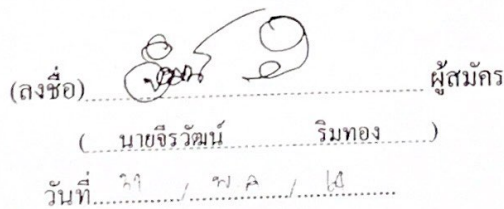 (ลงชื่อ)........................................ผู้สมัคร
( นายจีรวัฒน์ ริมทอง )
วันที่ / /